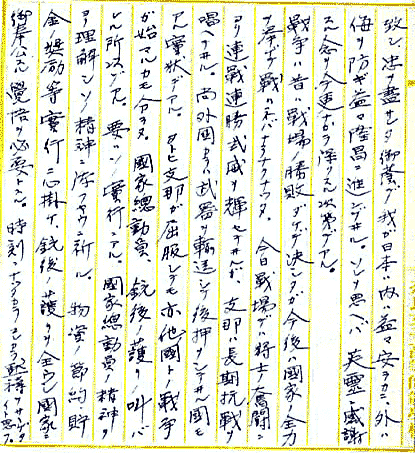 致シ忠ヲ盡セタ御蔭デ我ガ日本ハ内ハ益々安ラカニ、外ハ
侮ヲ防ギ益々隆昌ニ進ンデヰル。ソレヲ思ヘバ英靈ニ感謝
スル念ヲ今更ナガラ深ウスル次第デアル。
戰爭ハ昔ハ戰場ノ勝敗ダケデ決シタガ今後ハ國家ノ全力
ヲ擧ゲテ戰ハネバナラナクナツタ。今日戰場デ將士ノ奮闘ニ
ヨリ連戰連勝武威ヲ輝セテヰルガ、支那ハ長期抗戰ヲ
唱ヘテヰル。尚外國カラハ武器ヲ輸送シテ後押シシテヰル國モ
アル實状デアル。タトヒ支那ガ屈服シテモ亦他國トノ戰爭
ガ始マルカモ分ラヌ。國家總動員、銃後ノ護リノ叫バ
レル所以デアル。要ハソノ實行ニアル。國家總動員ノ精神ヲ
ヨク理解シソノ精神ニ添フヤウ祈ル。物資ノ節約貯
金ノ奬励等實行ニ心掛ケ、銃後ノ護リヲ全ウシ國家ニ
御奉公スル覺悟ガ必要トスル。時刻